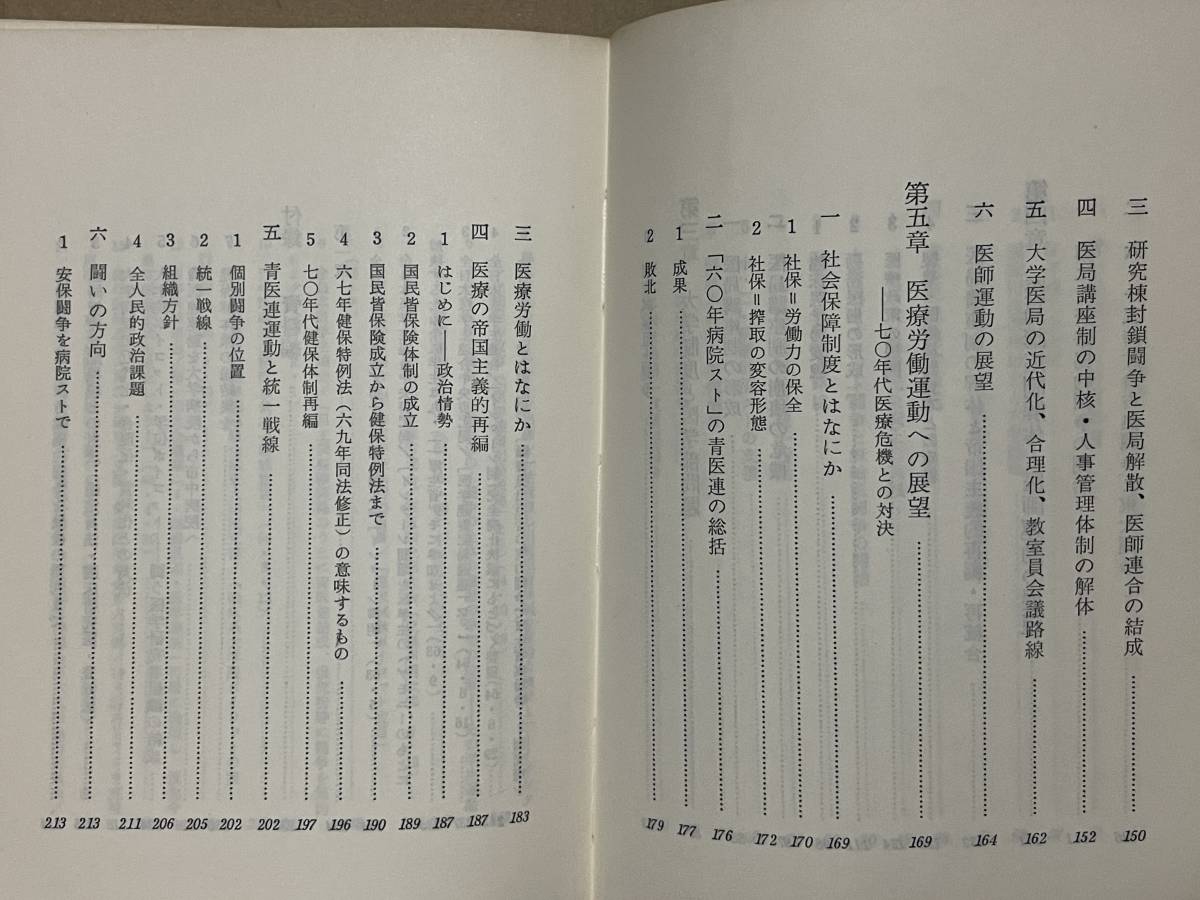 三 研究棟封鎖闘争と医局解散、医師連合の結成 150
四 医局講座制の中核・人事管理体制の解体 152
五 大学医局の近代化、合理化、教室員会議路線 162
六 医師運動の展望 164
第五章 医療労働運動への展望 169
――七〇年代医療危機との対決
一 社会保障制度とはなにか 169
1 社保=労働力の保全 170
2 社保=搾取の変容形態 172
二 「六〇年病院スト」の青医連の総括 176
1 成果 177
2 敗北 179
三 医療労働とはなにか 183
四 医療の帝国主義的再編 187
1 はじめに――政治情勢 187
2 国民皆保険体制の成立 189
3 国民皆保険成立から健保特例法まで 190
4 六七年健保特例法(六九年同法修正)の意味するもの 196
5 七〇年代健保体制再編 197
五 青医連運動と統一戦線 202
1 個別闘争の位置 202
2 統一戦線 205
3 組織方針 206
4 全人民的政治課題 211
六 闘いの方向 213
1 安保闘争を病院ストで 213